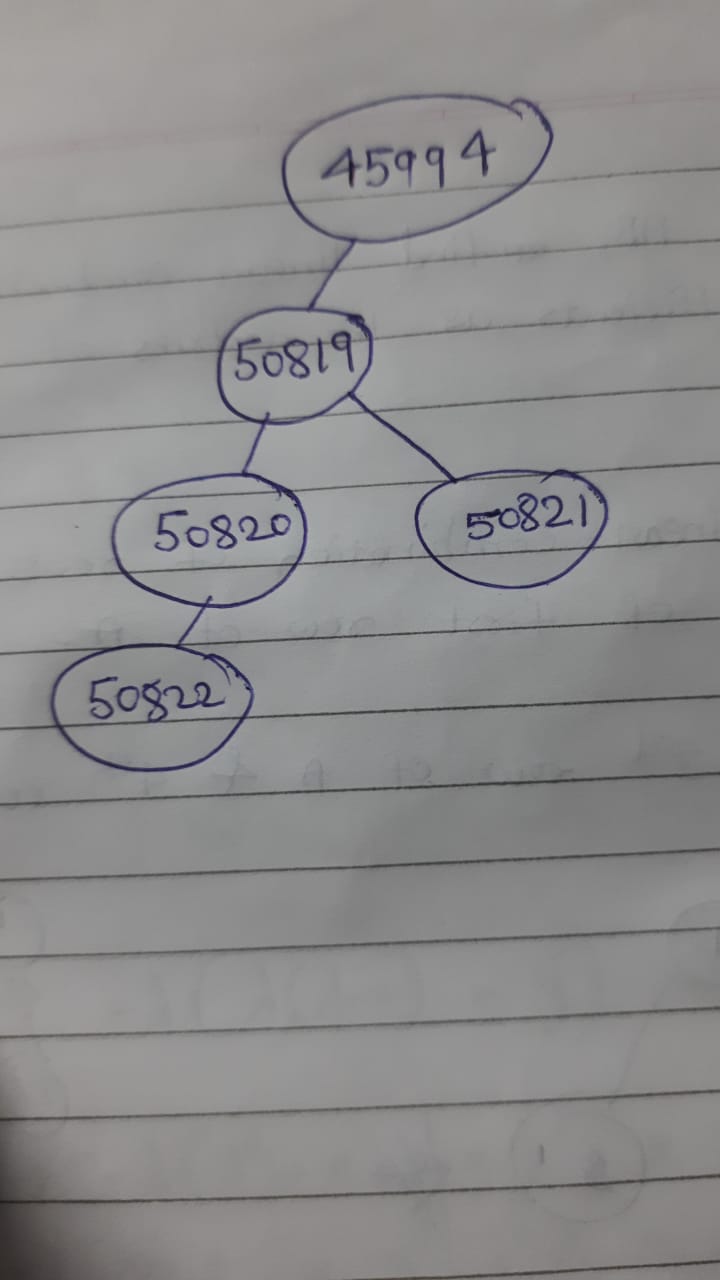 45994
50819
50820 50821
50822